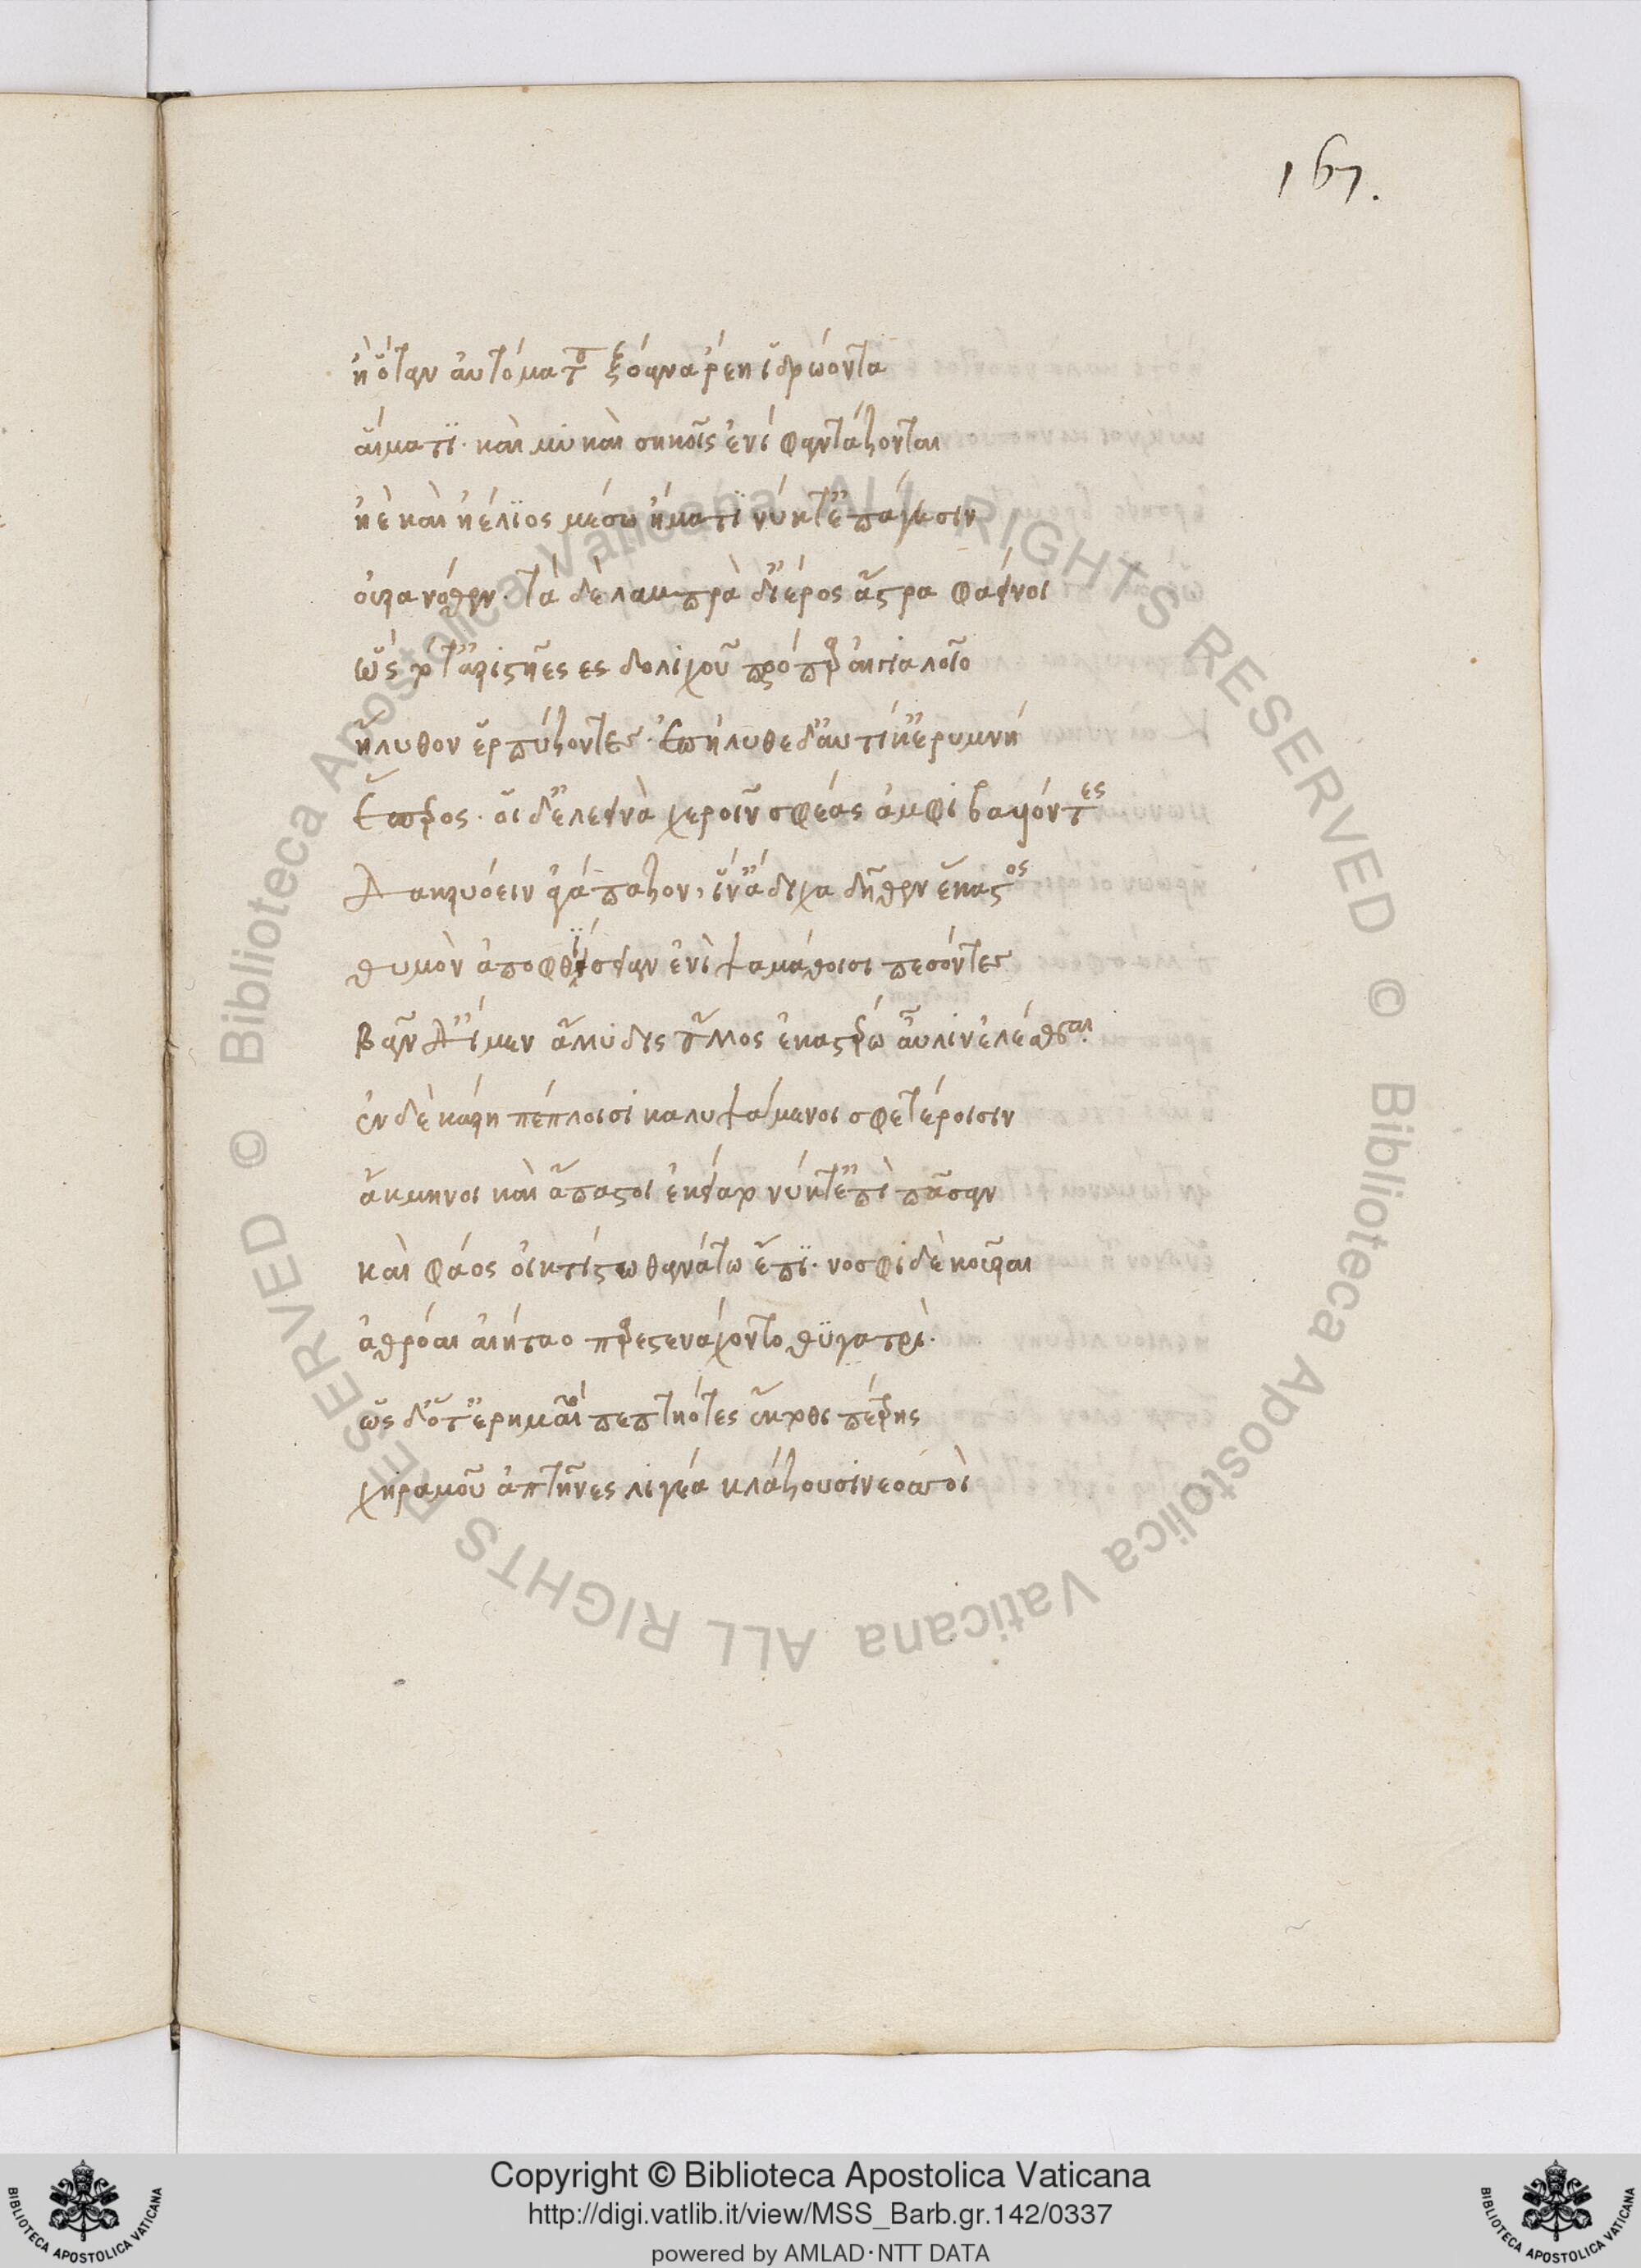 167.
ἢ ὅταν αὐτόματα ξόανα ῥέῃ ἱδρώοντα
αἵματι· καὶ μύκαι σηκοῖς ἐνὶ φαντάζονται
ἠὲ καὶ ἠέλιος μέσω ἤματι νύκτ' ἐπάγησιν
οὐρανόθεν· τὰ δὲ λαμπρὰ δι' ἠέρος ἄστρα φαείνοι
ὣς τότ' ἀριστῆες δολιχοῦ πρόπαρ αἰγιαλοῖο
ἤλυθον ἑρπύζοντες· ἐπήλυθε δ' αὐτίκ' ἐρυμνή
ἕσπερος· οἱ δ' ἐλεεινὰ χεροῖν σφέας ἀμφιβαλόντες
δακρυόειν ἀγάπαζον, ἵν' ἄνδιχα δῆθεν ἕκαστος
θυμὸν ἀποφθίσειαν ἐνὶ ψαμάθοισι πεσόντες
βὰν δ' ἴμεν ἄμυδις τῆμος ἑκαστέρω αὖλιν ἑλέσθαι.
ἐν δὲ κάρη πέπλοισι καλυψάμενοι σφετέροισιν
ἄκμηνοι καὶ ἄπαστοι ἐκείατο νύκτ' ἐπὶ πᾶσαν
καὶ φάος οἰκτίστω θανάτω ἔπι· νόσφι δὲ κοῦραι
ἀθρόαι αἰήταο παρεστενάχοντο θυγατρί.
ὡς δ' ὅτ' ἐρημαῖοι πεπτηότες ἔκτοθι πέτρης
χηραμοῦ ἀπτῆνες λιγέα κλάζουσι νεοσσοὶ
Copyright © Biblioteca Apostolica Vaticana
http://digi.vatlib.it/view/MSS_Barb.gr.142/0337
powered by AMLAD·NTT DATA
BIBLIOTECA APOSTOLICA VATICANA
BIBLIOTECA APOSTOLICA VATICANA
© Biblioteca Apostolica Vaticana ALL RIGHTS RESERVED
© Biblioteca Apostolica Vaticana ALL RIGHTS RESERVED